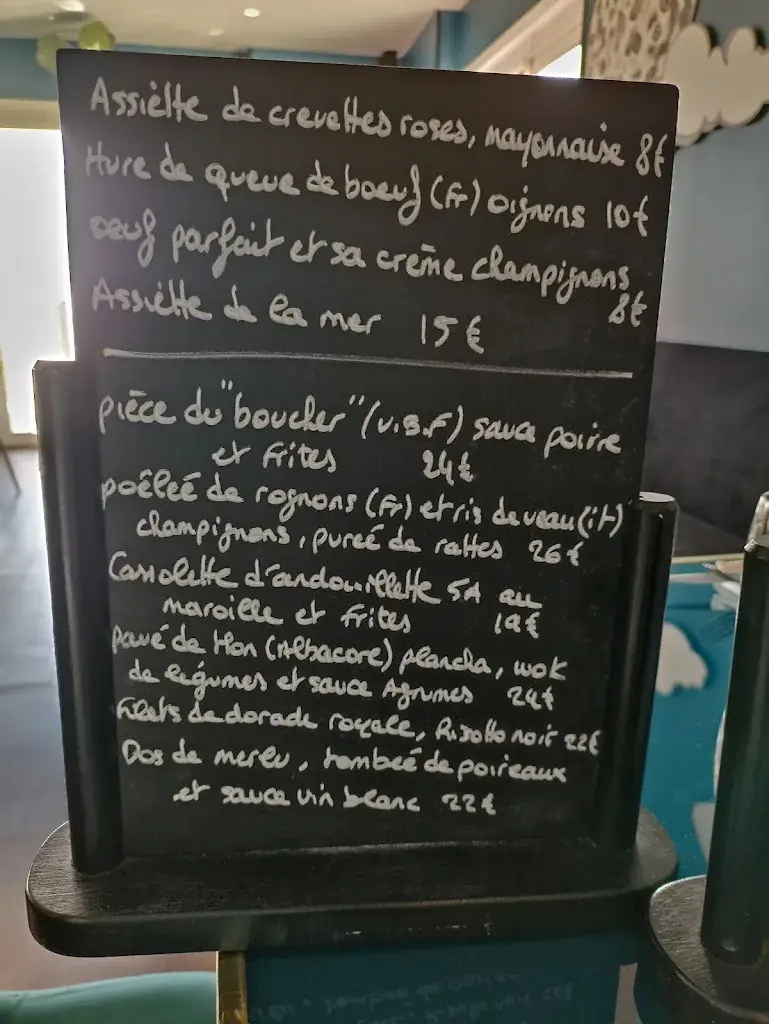 Assiètte de crevettes roses, mayonnaise 8€
Hure de queue de boeuf (Fr) oignons 10€
oeuf parfait et sa crème champignons
8€
Assiètte de la mer 15€
pièce du "boucher" (V.B.F) sauce poivre
et Frites 24€
poêleé de rognons (Fr) et ris de veau (it)
champignons, pureé de rattes 26€
Cassolette d'andouillette 5A au
maroille et Frites 19€
pavé de thon (Albacore) plancha, wok
de légumes et sauce Agrumes 24€
Filets de dorade royale, Risotto noir 22€
Dos de merlu, tombeé de poireaux
et sauce vin blanc 22€